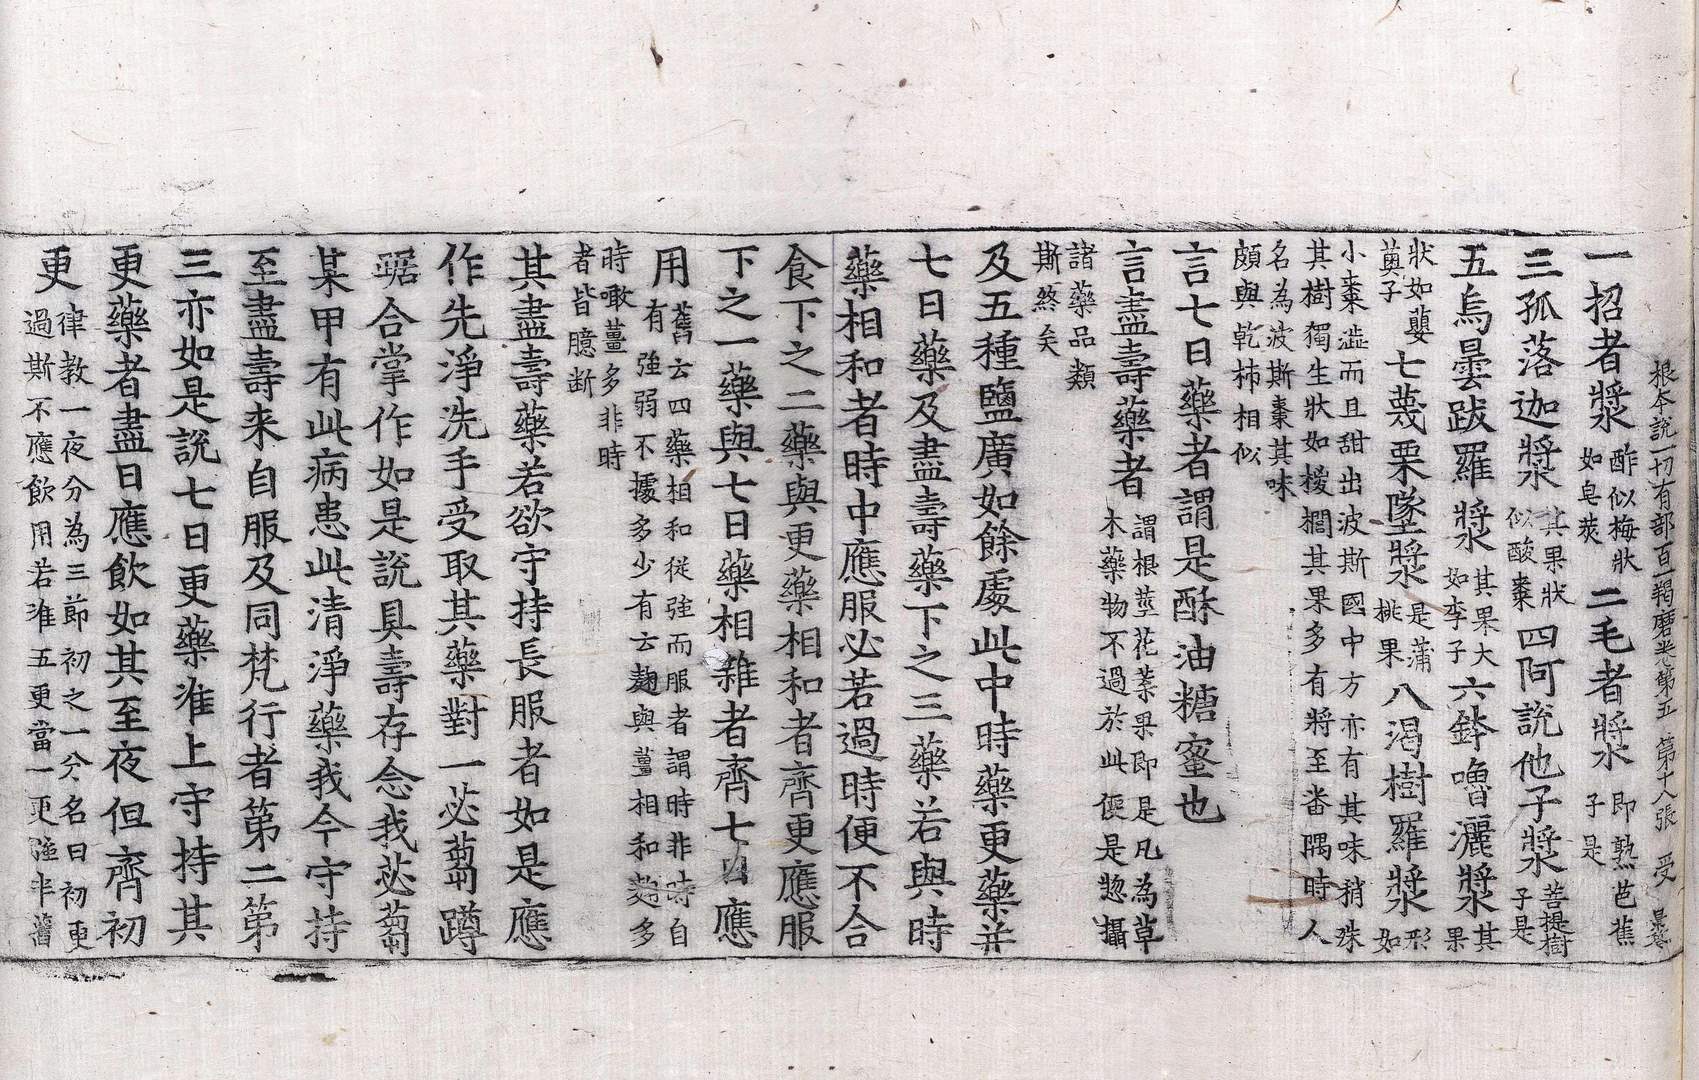 根本說一切有部百一羯磨卷第五 第十八張 受
一招者漿酢似梅狀如皂莢二毛者漿即熟芭蕉子是
三孤落迦漿其果狀似酸棗四阿說他子漿菩提樹子是
五烏曇跋羅漿其果大如李子六鉢嚕灑漿其果
狀如蘡薁子七蔑栗墜漿是蒲桃果八渴樹羅漿形如
小棗澁而且甜出波斯國中方亦有其味稍殊
其樹獨生狀如椶櫚其果多有將至番隅時人
名為波斯棗其味頗與乾柿相似
言七日藥者謂是酥油糖蜜也
言盡壽藥者謂根莖花葉果即是凡為草木藥物不過於此便是惣攝
諸藥品類斯終矣
及五種鹽廣如餘處此中時藥更藥并
七日藥及盡壽藥下之三藥若與時
藥相和者時中應服必若過時便不合
食下之二藥與更藥相和者齊更應服
下之一藥與七日藥相雜者齊七日應
用舊云四藥相和從強而服者謂時非時自有強弱不據多少有云麨與薑相和麨多
時噉薑多非時者皆臆斷
其盡壽藥若欲守持長服者如是應
作先淨洗手受取其藥對一苾蒭蹲
踞合掌作如是說具壽存念我苾蒭
某甲有此病患此清淨藥我今守持
至盡壽来自服及同梵行者第二第
三亦如是說七日更藥准上守持其
更藥者盡日應飲如其至夜但齊初
更律教一夜分為三節初之一分名曰初更過斯不應飲用若准五更當一更強半舊